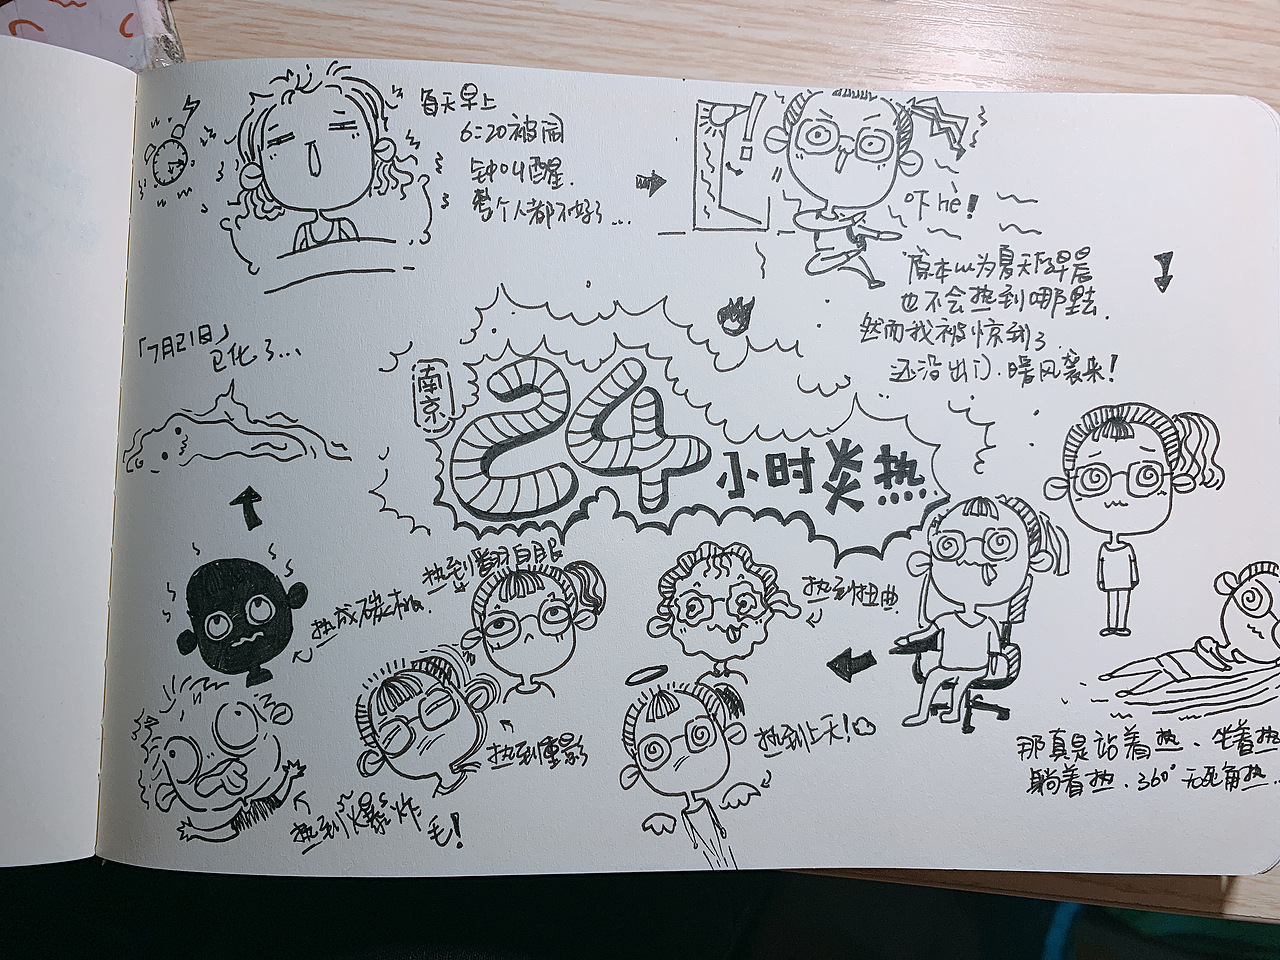 每天早上
6:20被闹
钟叫醒.
整个人都不好了...
吓hè!
原本以为夏天的早晨
也不会热到哪里去.
然而我被惊到了.
还没出门.暖风袭来!
南京
24小时炎热
那真是站着热、坐着热
躺着热.360°无死角热..
热到扭曲
热到上天!
热到翻白眼
热到重影
热到爆炸
毛!
热成碳
「7月21日」
已化了...